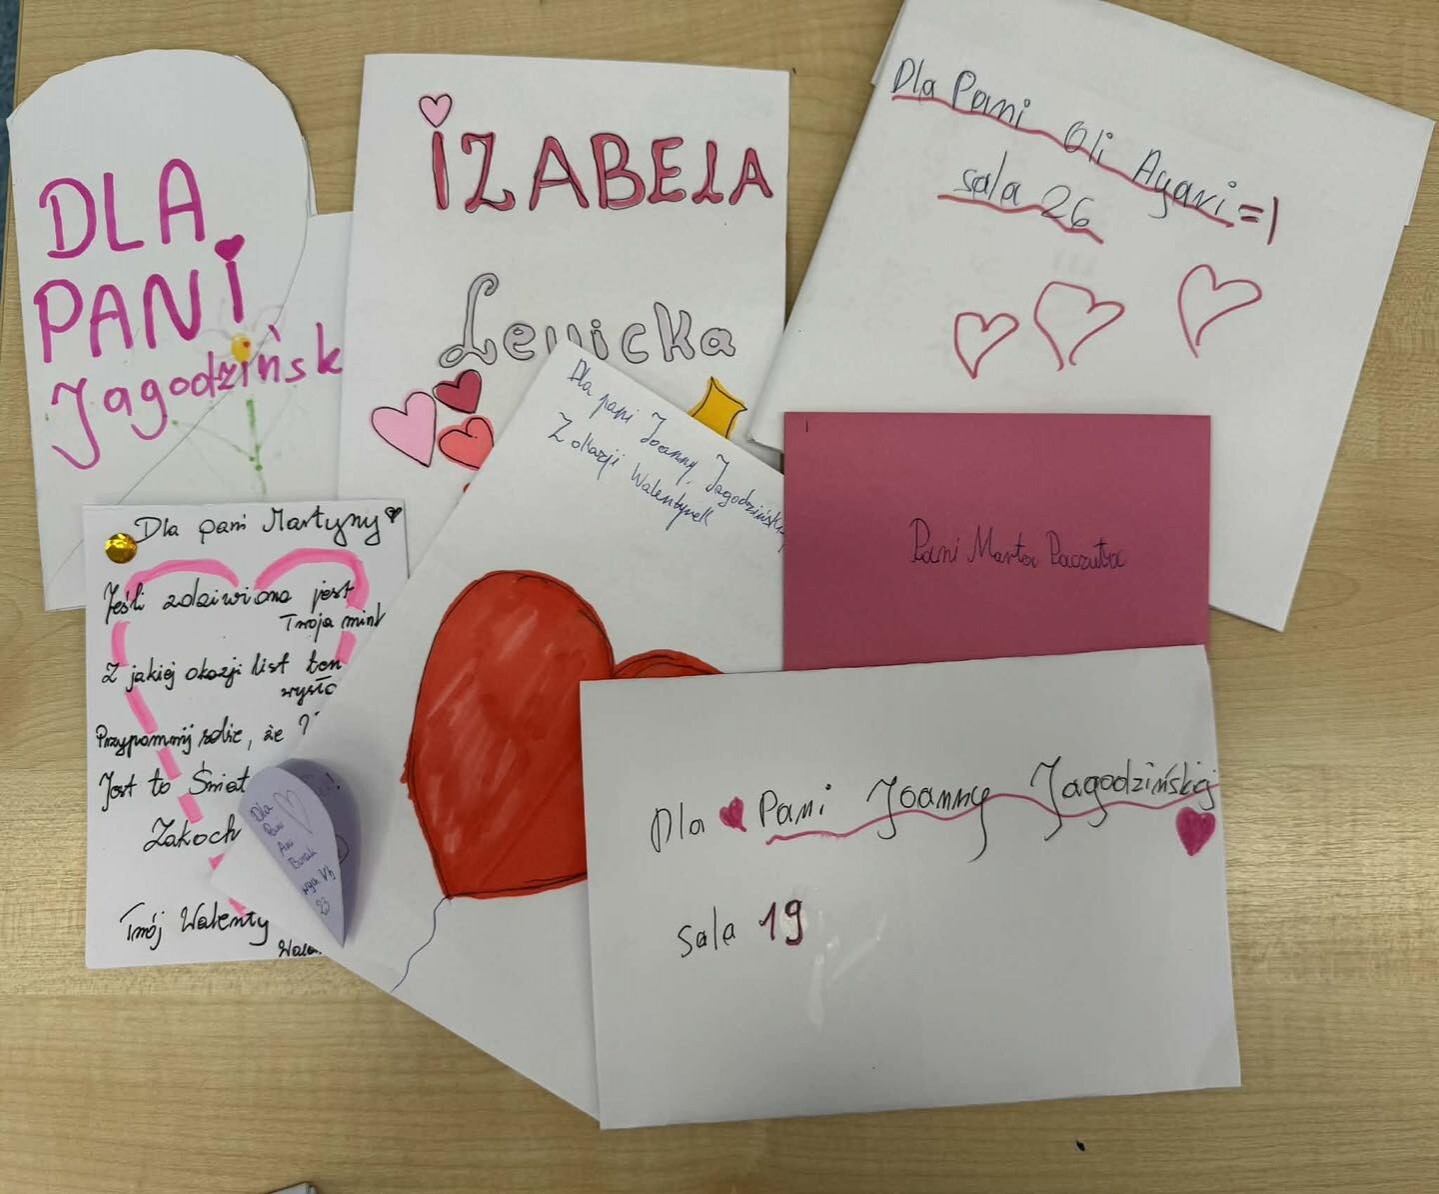 DLA
PANI
Jagodzińsk
IZABELA
Lewicka
Dla Pani Oli Agani =)
sala 26
Dla pani Joanny Jagodzińskiej
Z okazji Walentynek
Pani Marta
Dla pani Martyny
Jeśli zdziwiona jest
Twoja mina
Z jakiej okazji list ten
wysła
Przypomnij sobie, że
Jest to Świat
Zakoch
Twój Walenty
Dla
Pani
23
Dla Pani Joanny Jagodzińskiej
sala 19